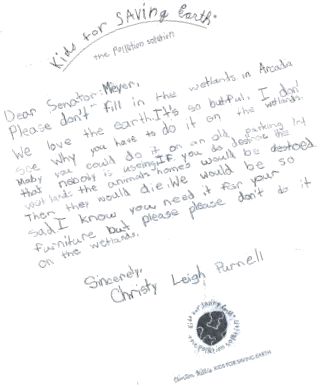 Kids for SAVING Earth
the pollution solution
Dear Senator Meyer,
Please don't fill in the wetlands in Arcada
We love the earth. It's so butiful, I don't
see why you have to do it on the wetlands.
Maby you could do it on an old parking lot
that nobody is using. If you do destroe the
wetlands the animals homes would be destoed
Then they would die. We would be so
sad. I know you need it for your
furniture but please please don't do it
on the wetlands.
Sincerely,
Christy Leigh Purnell
Kids for Saving Earth
KIDS FOR SAVING EARTH